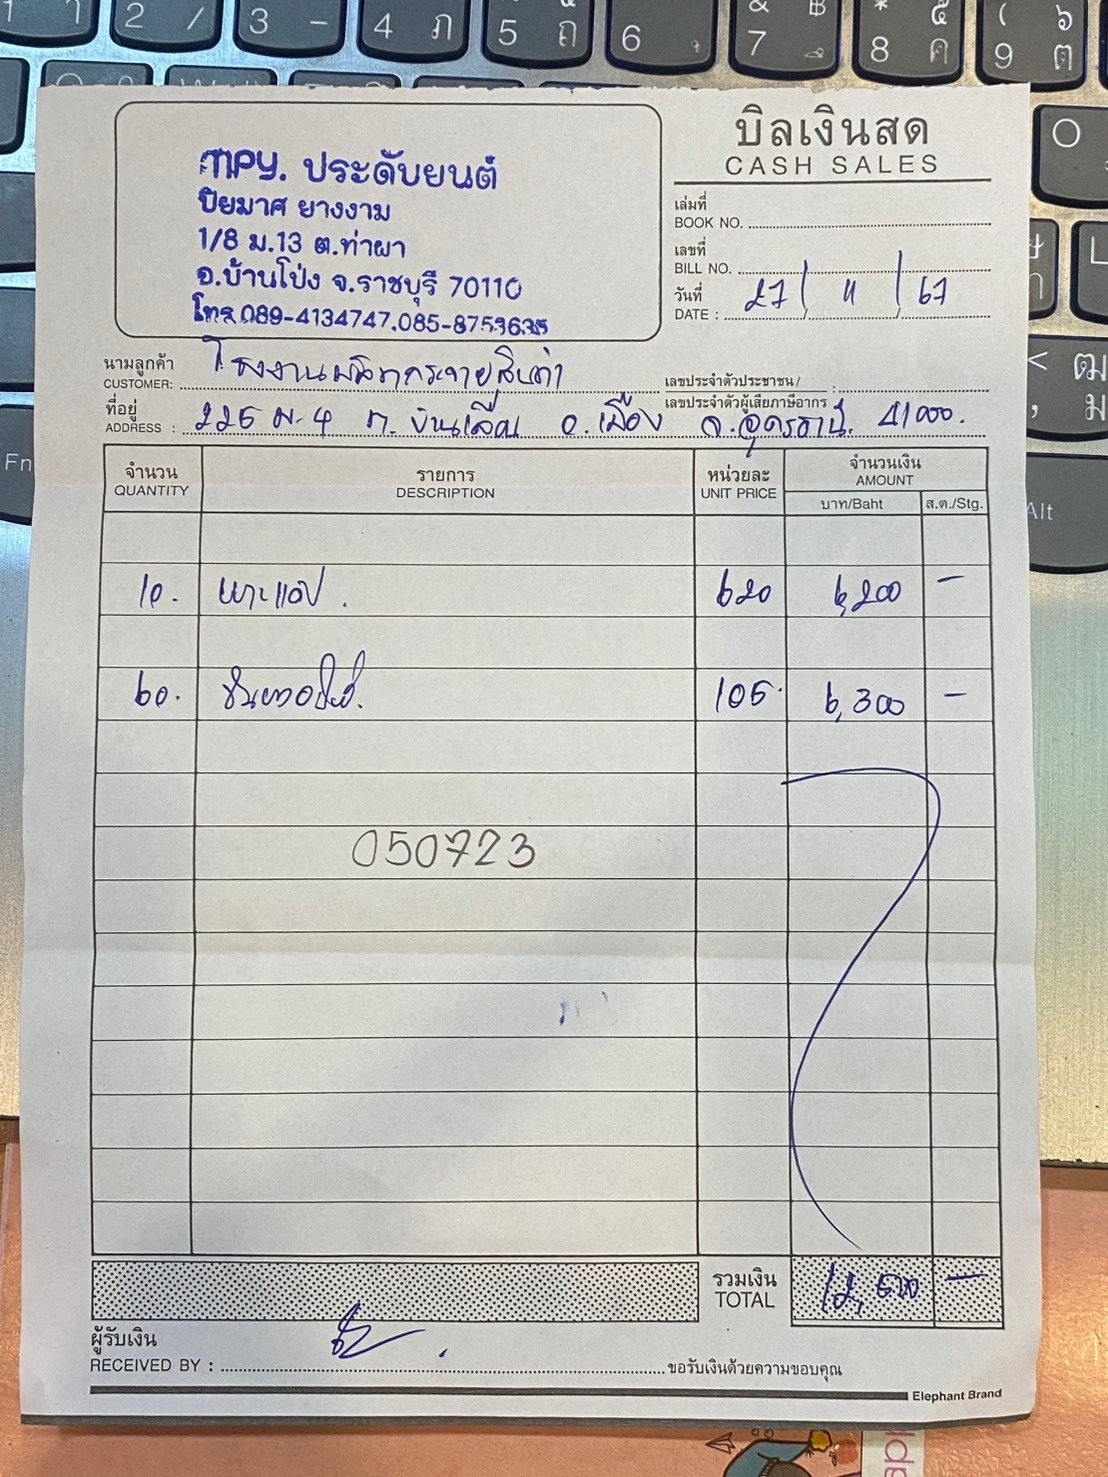 mpy. ประดับยนต์
ปิยมาศ ยางงาม
1/8 ม.13 ต.ท่าผา
อ.บ้านโป่ง จ.ราชบุรี 70110
โทร.089-4134747,085-8753635
บิลเงินสด
CASH SALES
เล่มที่
BOOK NO.
เลขที่
BILL NO.
วันที่ 27 / 11 / 67
DATE :
นามลูกค้า โรงงานผลิตกระจายสินค้า
CUSTOMER:
เลขประจำตัวประชาชน/ :
เลขประจำตัวผู้เสียภาษีอากร
ที่อยู่ 225 ม.4 ต. อ.เมือง จ.อุดรธานี. 41000.
ADDRESS :
จำนวน รายการ หน่วยละ จำนวนเงิน
QUANTITY DESCRIPTION UNIT PRICE AMOUNT
บาท/Baht ส.ต./Stg.
10. เบาะแค็ป. 620 6,200 -
60. 105 6,300 -
050723
รวมเงิน 12,500 -
TOTAL
ผู้รับเงิน
RECEIVED BY : ขอรับเงินด้วยความขอบคุณ
Elephant Brand